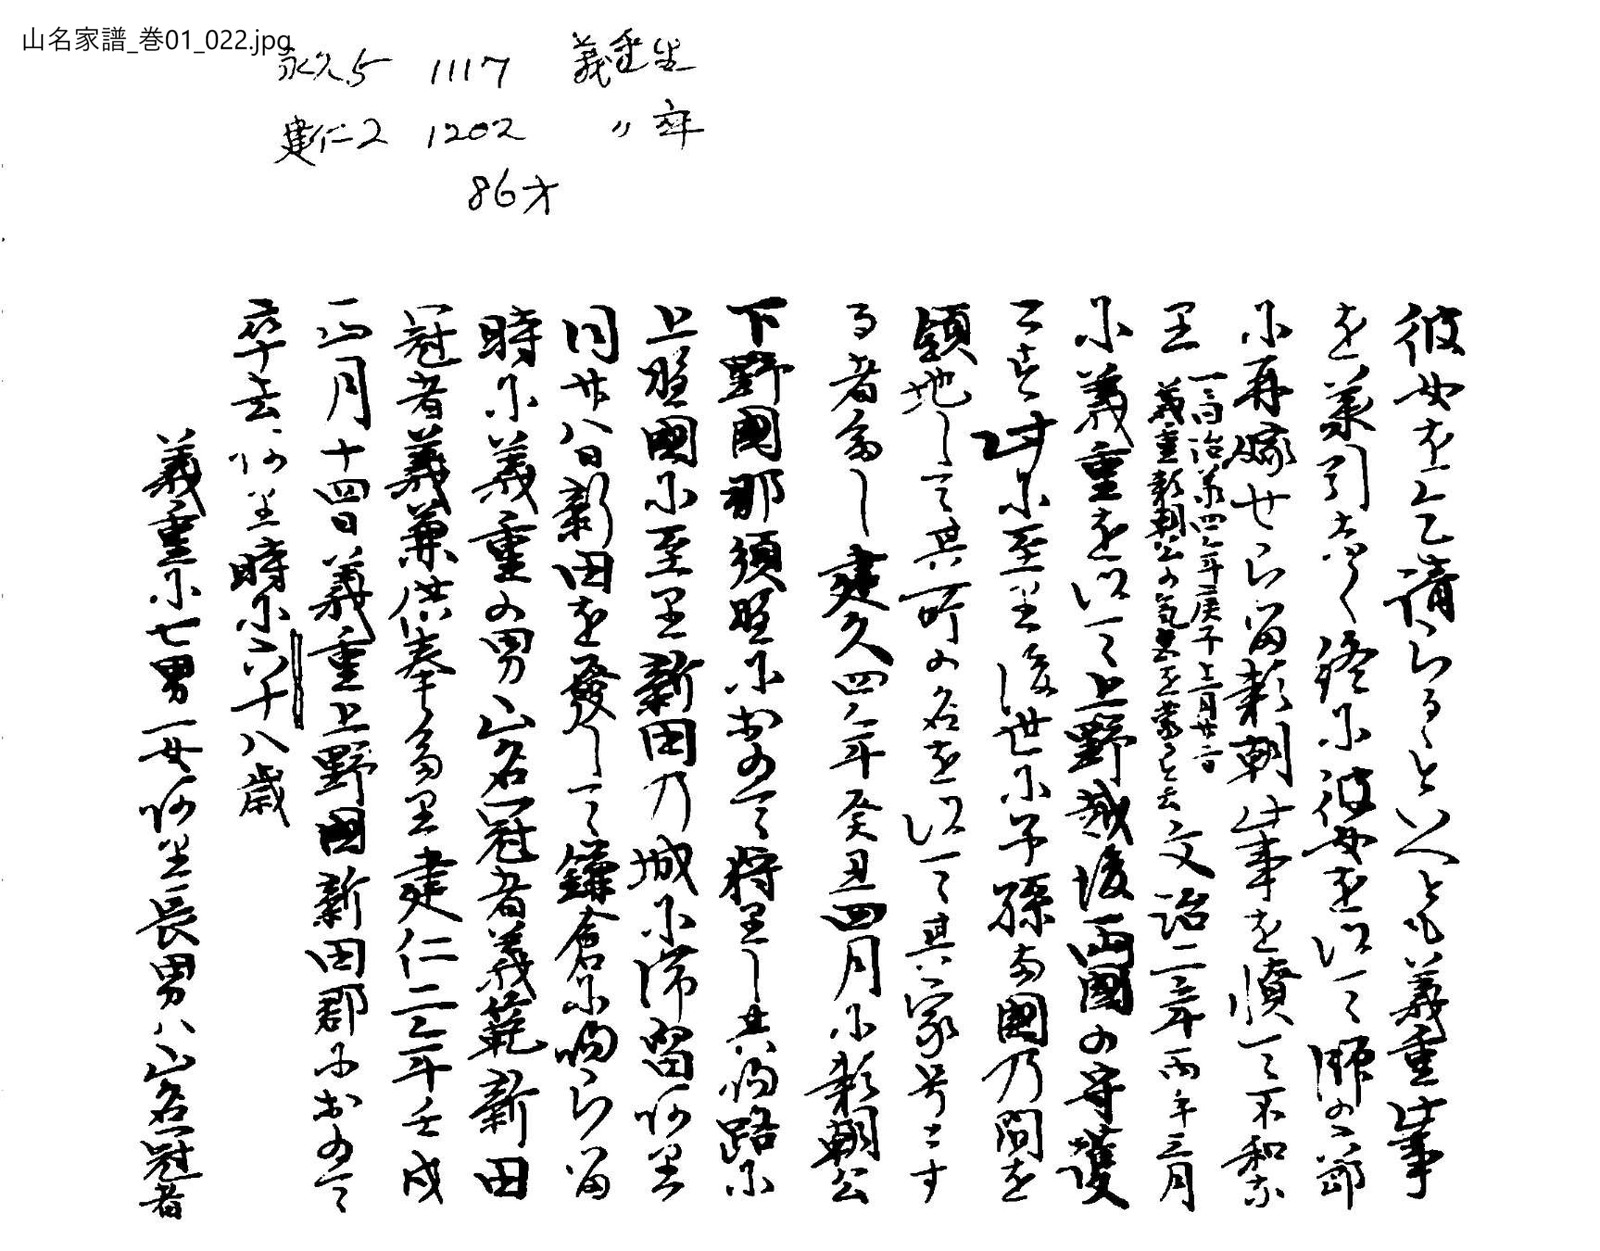 山名家譜_巻01_022.jpg
永久5 1117 義重生
建仁2 1202 〃 卒
86才
彼女を乞請らるゝといへとも義重此事
を兼引なく終に彼女を以て師の六郎
に再嫁せらる頼朝此事を憤て不和な
里
一ニ曰治承四年庚子十二月廿二日
義重頼朝公の気色を蒙ると云
文治二年丙午三月
に義重を以て上野越後両國の守護
とす此に至里後世に子孫両國乃間を
領地して其所の名を以て其家号とす
る者多し建久四年癸丑四月に頼朝公
下野國那須野におのて狩里し其帰路に
上野國に至里新田乃城に滞留阿里
同廿八日新田を發して鎌倉に帰らる
時に義重の男山名冠者義範新田
冠者義兼供奉多里建仁二年壬戌
正月十四日義重上野國新田郡におのて
卒去阿里時に六十八歳
義重に七男一女阿里長男ハ山名冠者